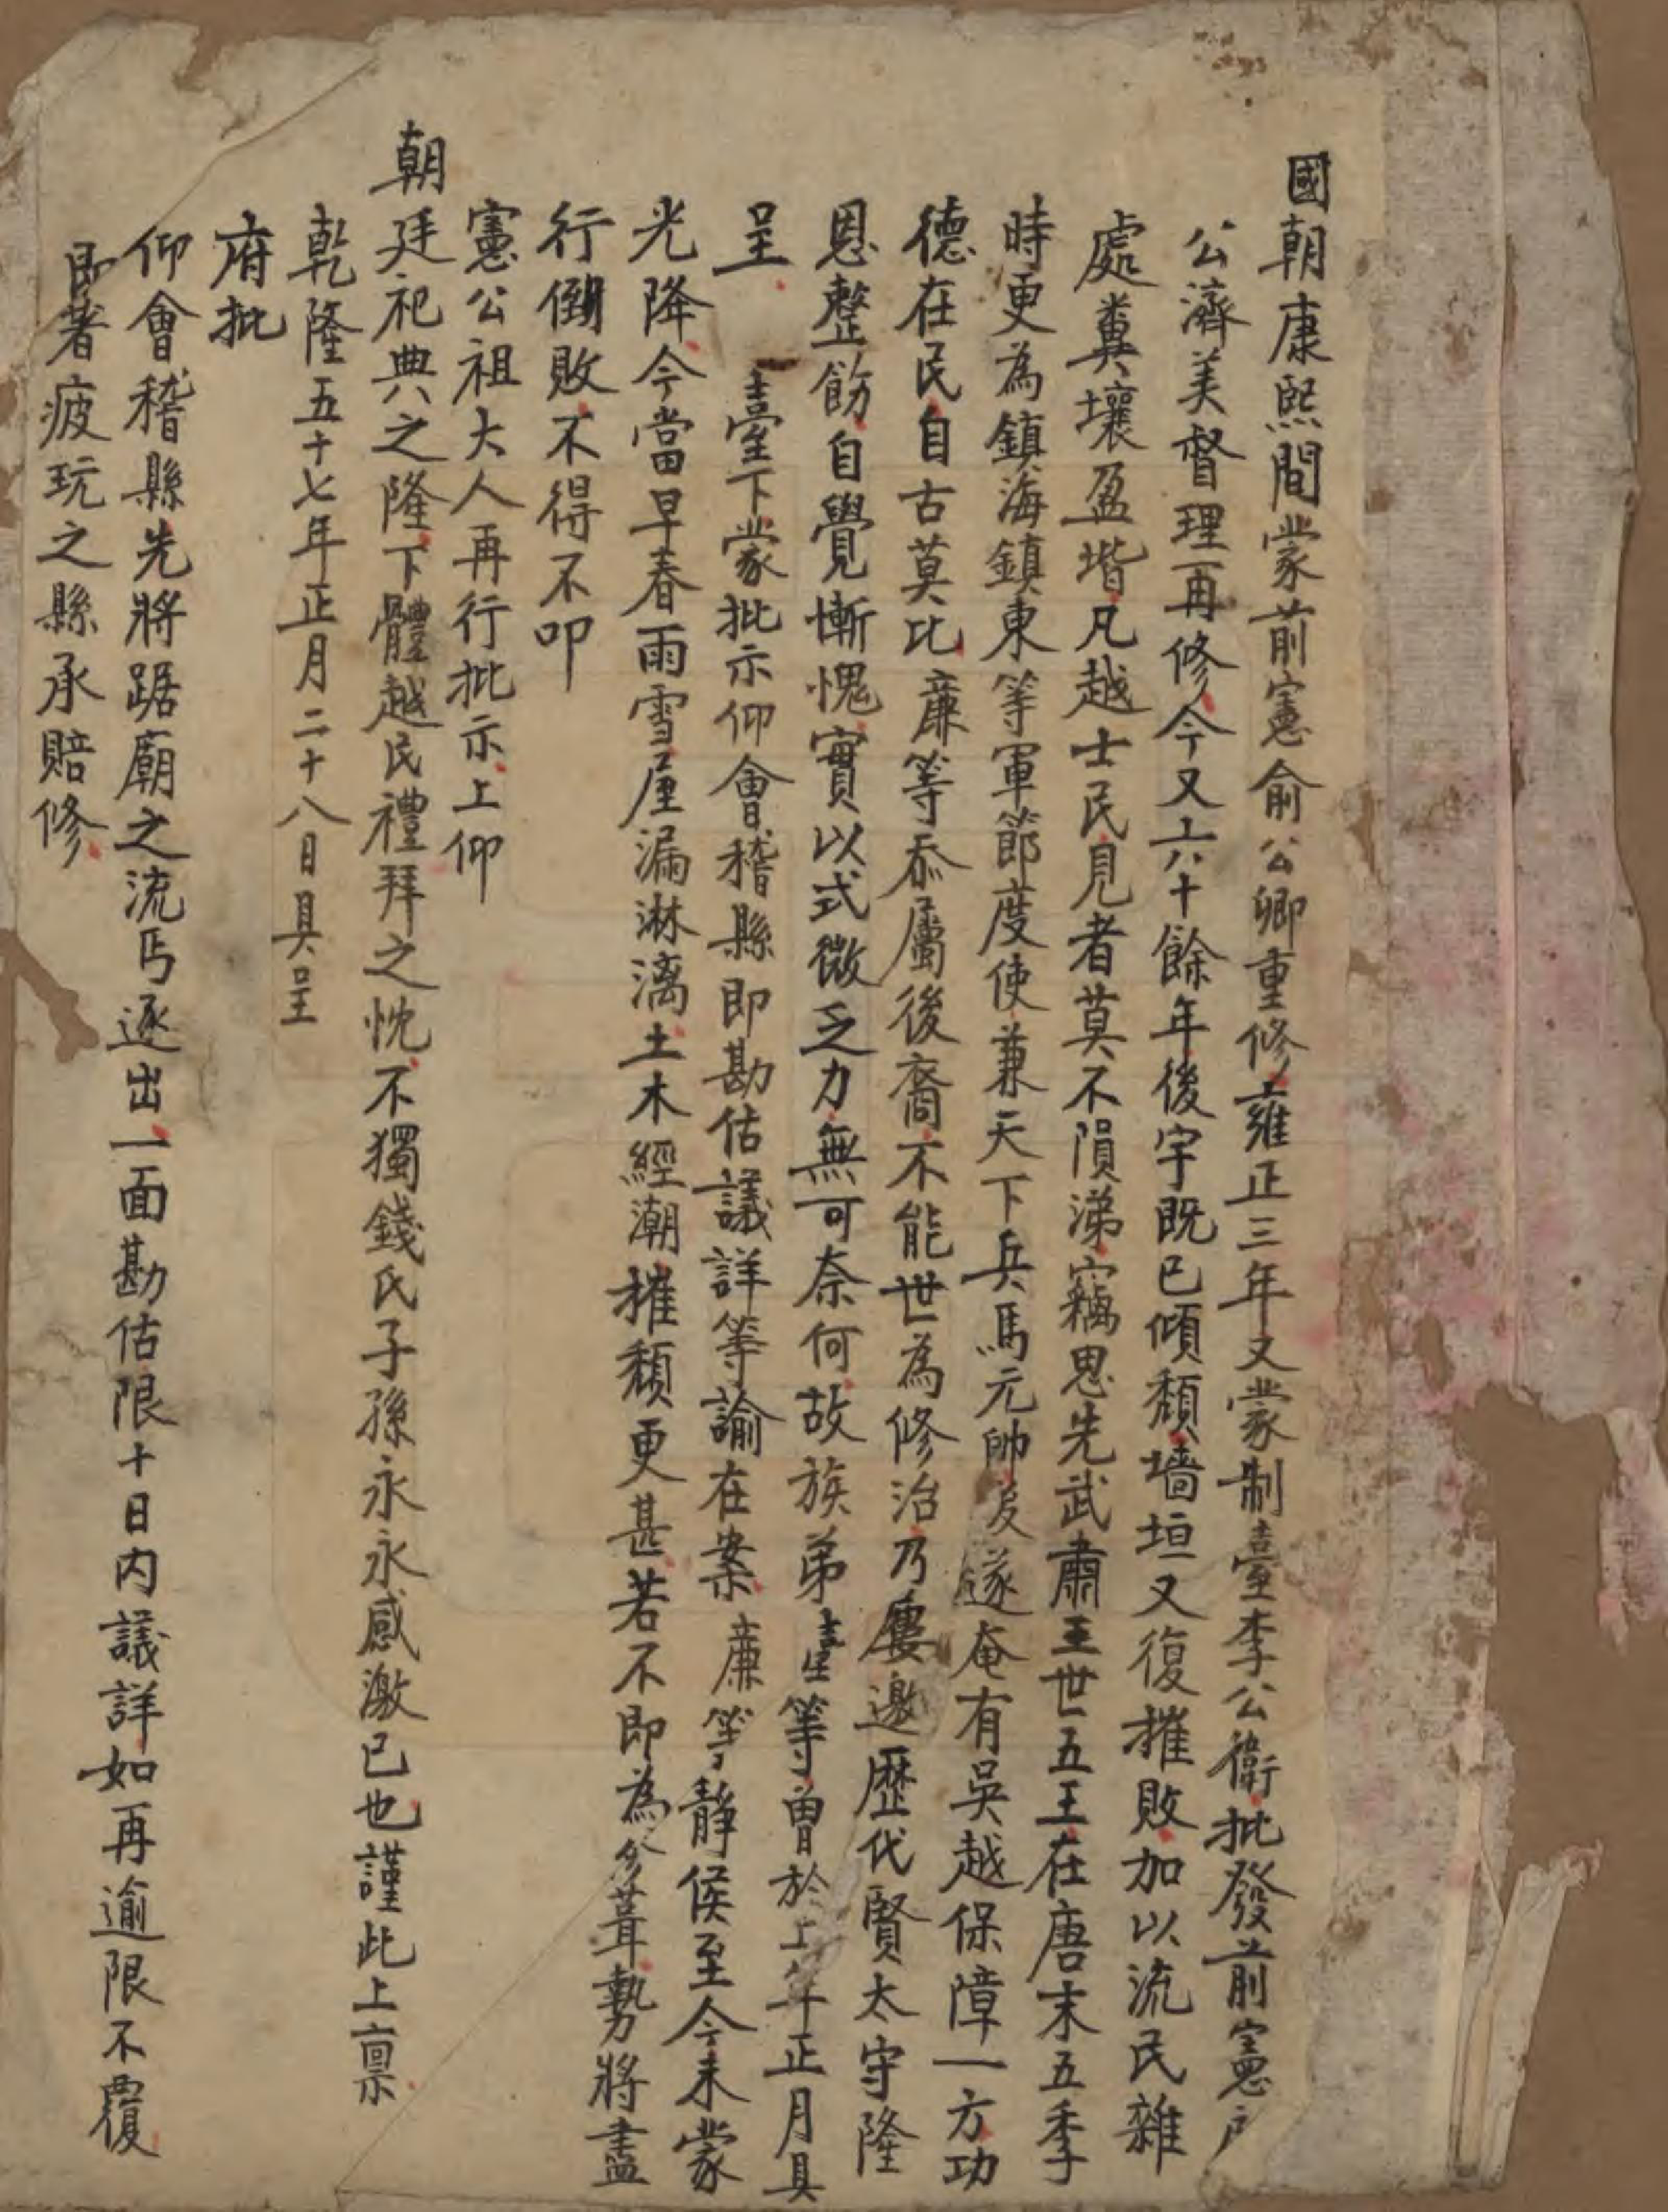 國朝康熙間蒙前憲俞公卿重修雍正三年又蒙制臺李公衛批發前憲
公濟美督理再修今又六十餘年後宇既已傾頹墻垣又復摧敗加以流民雜
處糞壤盈堦凡越士民見者莫不隕涕竊思先武肅王世五王在唐末五季
時更為鎮海鎮東等軍節度使兼天下兵馬元帥後遂奄有吳越保障一方功
德在民自古莫比廉等忝屬後裔不能世為修治乃屢邀歷代賢太守隆
恩整飭自覺慚愧實以式微乏力無可奈何故族弟等曾於上年正月具
呈 臺下蒙批示仰會稽縣即勘估議詳等諭在案廉等靜侯至今未蒙
光降今當早春雨雪屋漏淋漓土木經潮摧頹更甚若不即為修葺勢將盡
行倒敗不得不叩
憲公祖大人再行批示上仰
朝廷祀典之隆下體越民禮拜之忱不獨錢氏子孫永永感激已也謹此上禀
乾隆五十七年正月二十八日具呈
府批
仰會稽縣先將踞廟之流丐逐出一面勘估限十日內議詳如再逾限不覆
即著疲玩之縣承賠修